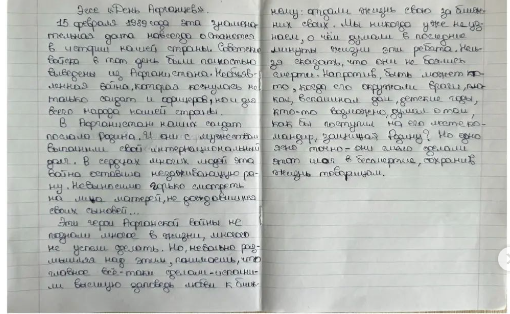 Эссе «День Афганцев».
15 февраля 1989 года эта знамена-
тельная дата навсегда останется
в истории нашей страны. Советские
войска в тот день были полностью
выведены из Афганистана. Необъяв-
ленная война, которая коснулась не
только солдат и офицеров, но и для
всего народа нашей страны.
В Афганистан наших солдат
послала Родина. И они с мужеством
выполнили свой интернациональный
долг. В сердцах многих людей эта
война оставила незаживающую ра-
ну. Невыносимо горько смотреть
на лица матерей, не дождавшихся
своих сыновей...
Эти герои Афганской войны не
познали многое в жизни, многого
не успели сделать. Но, невольно раз-
мышляя над этим, понимаешь, что
главное всё-таки сделали - исполни-
ли высшую заповедь любви к ближ-
нему: отдали жизнь свою за ближ-
них своих. Мы никогда уже не уз-
наем, о чём думали в последние
минуты жизни эти ребята. Нель-
зя сказать, что они не боялись
смерти. Напротив, быть может кто-
то, когда его окружали враги,
вспоминал дом, детские годы,
кто-то возможно, думал о том,
как бы поступил на его месте ко-
мандир, защищая Родину? Но одно
ясно точно - они смело сделали
этот шаг в бессмертие, сохранив
жизнь товарищам.